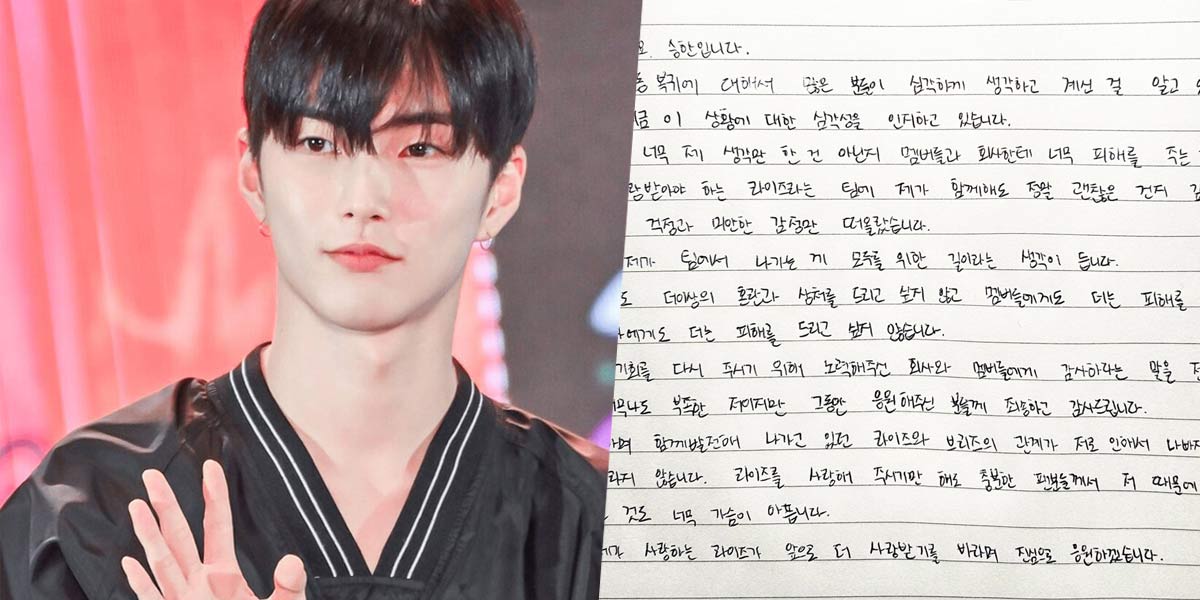 승한입니다.
복귀에 대해서 많은 분들이 심각하게 생각하고 계신 걸 알고
이 상황에 대한 심각성을 인지하고 있습니다.
너무 제 생각만 한 건 아닌지 멤버들과 회사한테 너무 피해를 주는
하는 라이즈라는 팀에 제가 함께해도 정말 괜찮은 건지
걱정과 미안한 감정만 떠올랐습니다.
제가 팀에서 나가는 게 모두를 위한 길이라는 생각이 듭니다.
더이상의 혼란과 상처를 드리고 싶지 않고 멤버들에게도 더는 피해를
더는 피해를 드리고 싶지 않습니다.
기회를 다시 주시기 위해 노력해주신 회사와 멤버들에게 감사하다는 말을
부족한 저이지만 그동안 응원해주신 분들께 죄송하고 감사드립니다.
함께발전해 나가고 있던 라이즈와 브리즈의 관계가 저로 인해서
않습니다. 라이즈를 사랑해 주시기만 해도 충분한 팬분들께서 저 때문에
것도 너무 가슴이 아픕니다.
사랑하는 라이즈가 앞으로 더 사랑받기를 바라며 진심으로 응원하겠습니다.